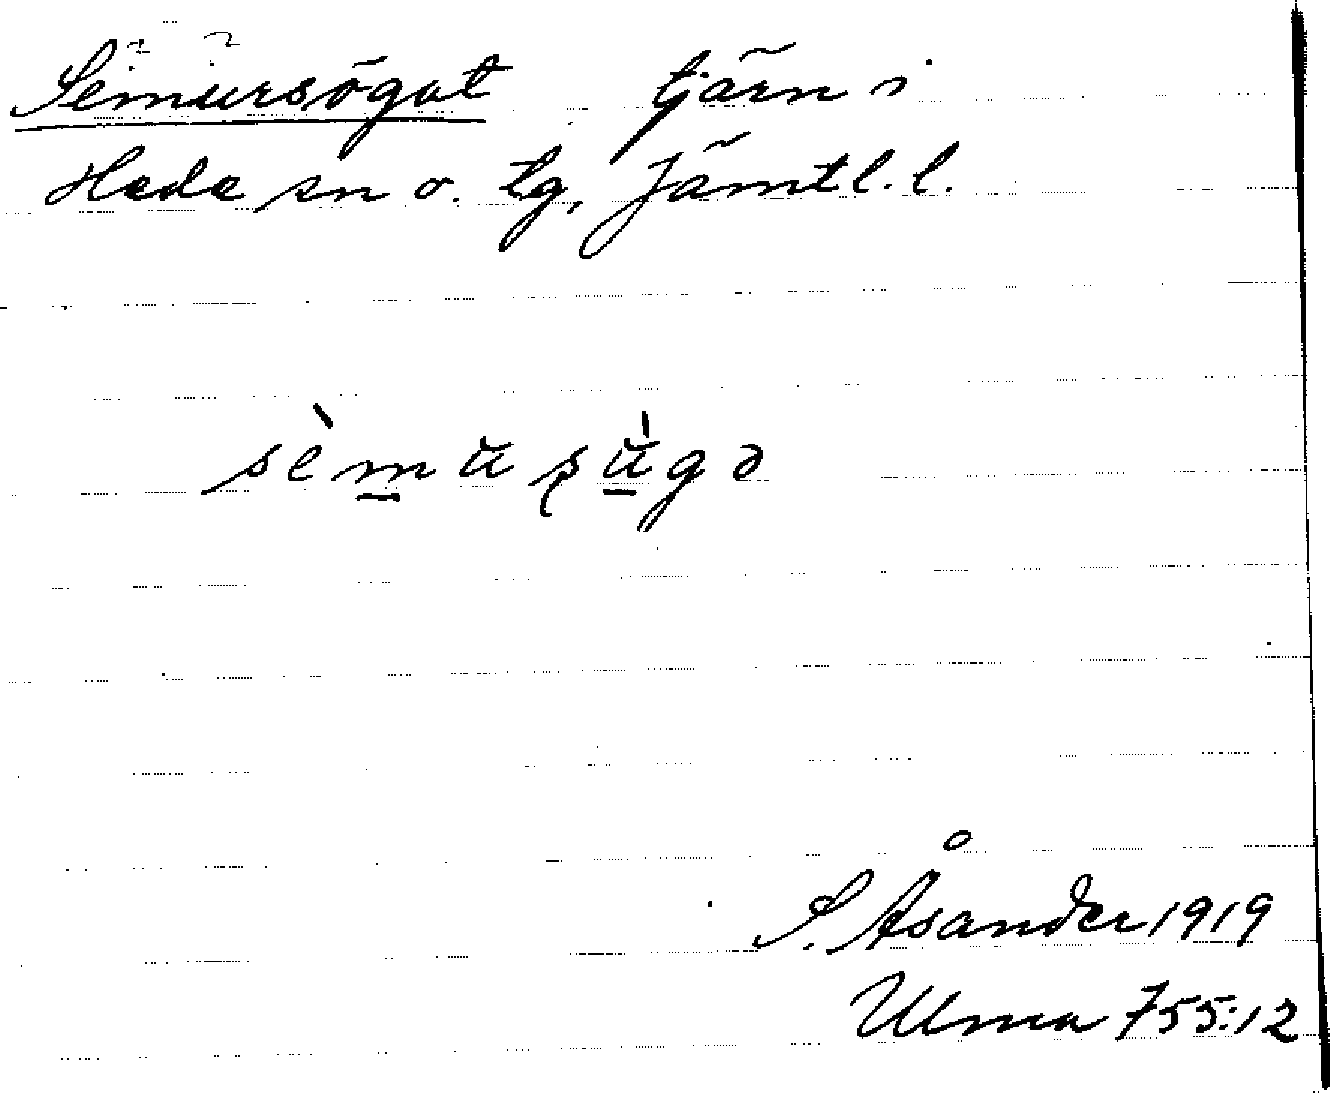 Semursögat tjärn i
Hede sn o. tg, Jämtl. l.
sèmuṣùgə
S. Åsander 1919
Ulma 755:12